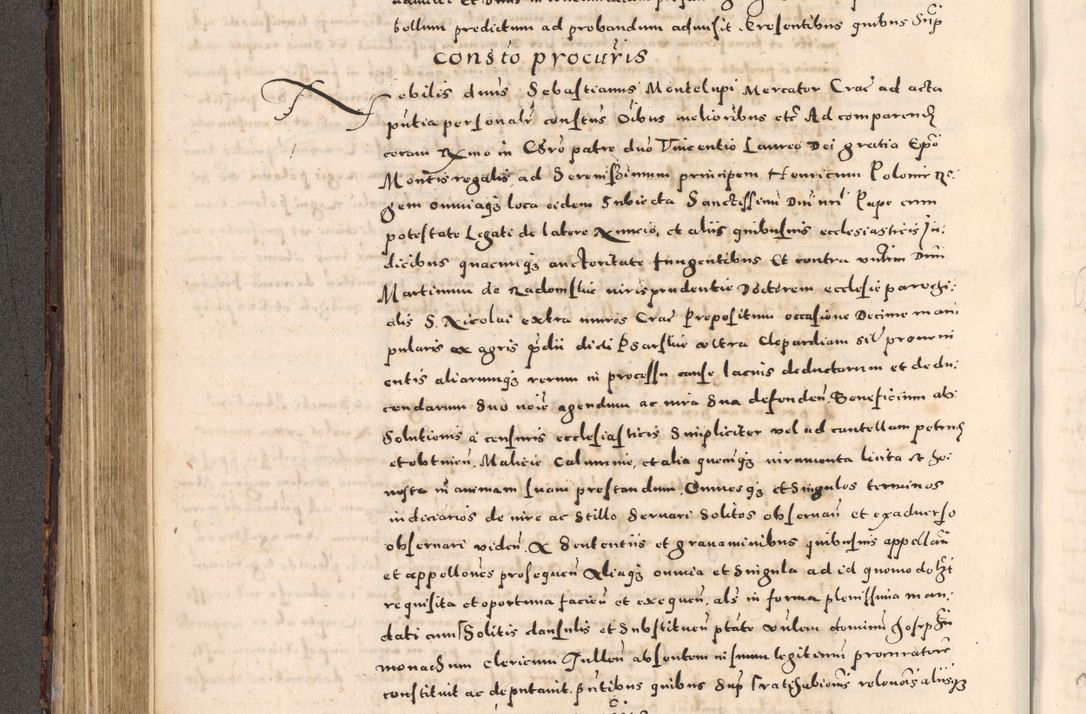 bellum predictum ad probandum admisit Presentibus quibus Sup
Consto procuris
Nobilis dnus Sebastianus Montelupi Mercator Crac ad acta
pntia personalr constus Oibus melioribus etc Ad comparend
coram Rmo in Chro patre dno Vincentio Laureo Dei gratia Epo
Montisregalis ad Serenissimum principem Henricum Polonie Re-
gem omniaqz loca eidem Subiecta Sanctissimi Dni nri Pape cum
potestate Legati de latere Nuncio, et aliis quibusuis ecclesiasticis Ju-
dicibus quacunqz auctoritate fungentibus Et contra vnlem Dnm
Martinum de Radomsko iurisprudentie Doctorem ecclesie parochi-
alis S. Nicolai extra muros Crac Prepositum occasione Decime mani
pularis ex agris pdii dicti Psarskie vltra Clepardiam sit proueni
entis aliarumqz rerum in processu cause lacius deductarum et dedu-
cendarum Suo noie agendum ac iura sua defenden. Beneficium ab-
solutionis a censuris ecclesiasticis Simpliciter vel ad cautellam petend
et obtinen. Malicie Calumnie, et alia quecunqz iuramenta licita et ho-
nesta in animam suam prestandum. Omnesqz et Singulos terminos
iudiciarios de iure ac Stillo Seruari Solitos obseruan et exaduerso
obseruari viden. A Sententiis et grauaminibus quibusuis appellan
et appellones prosequen Aliaqz omnia et Singula ad id quomodolibet
requisita et oportuna facien et exequen. als in forma plenissima man-
dati cum Solitis clausulis et Substituen ptate vnlem dominum Josephum
monachum clericum Jullen absentem nisuum legitimum procuratorem
constituit ac deputauit. Pntibus quibus Sup Ratihabionis releuois aliisqz